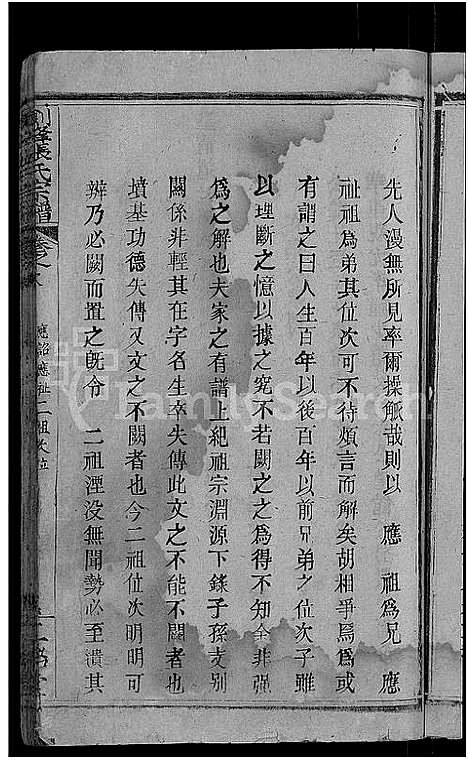 先人漫無所見率爾操觚哉則以 應 祖爲兄 應
祉祖爲弟其位次可不待煩言而解矣胡相爭焉爲或
有謂之曰人生百年以後百年以前兄弟之位次子雖
以理斷之憶以據之究不若闕之之爲得不知全非强
爲之解也夫家之有譜上紀祖宗淵源下錄子孫支別
關係非輕其在字名生卒失傳此文之不能不闕者也
墳基功德失傳又文之不闕者也今二祖位次明明可
辨乃必闕而置之旣令 二祖湮没無聞勢必至潰其
張氏宗譜
應詔應祉二祖次位
FamilySearch